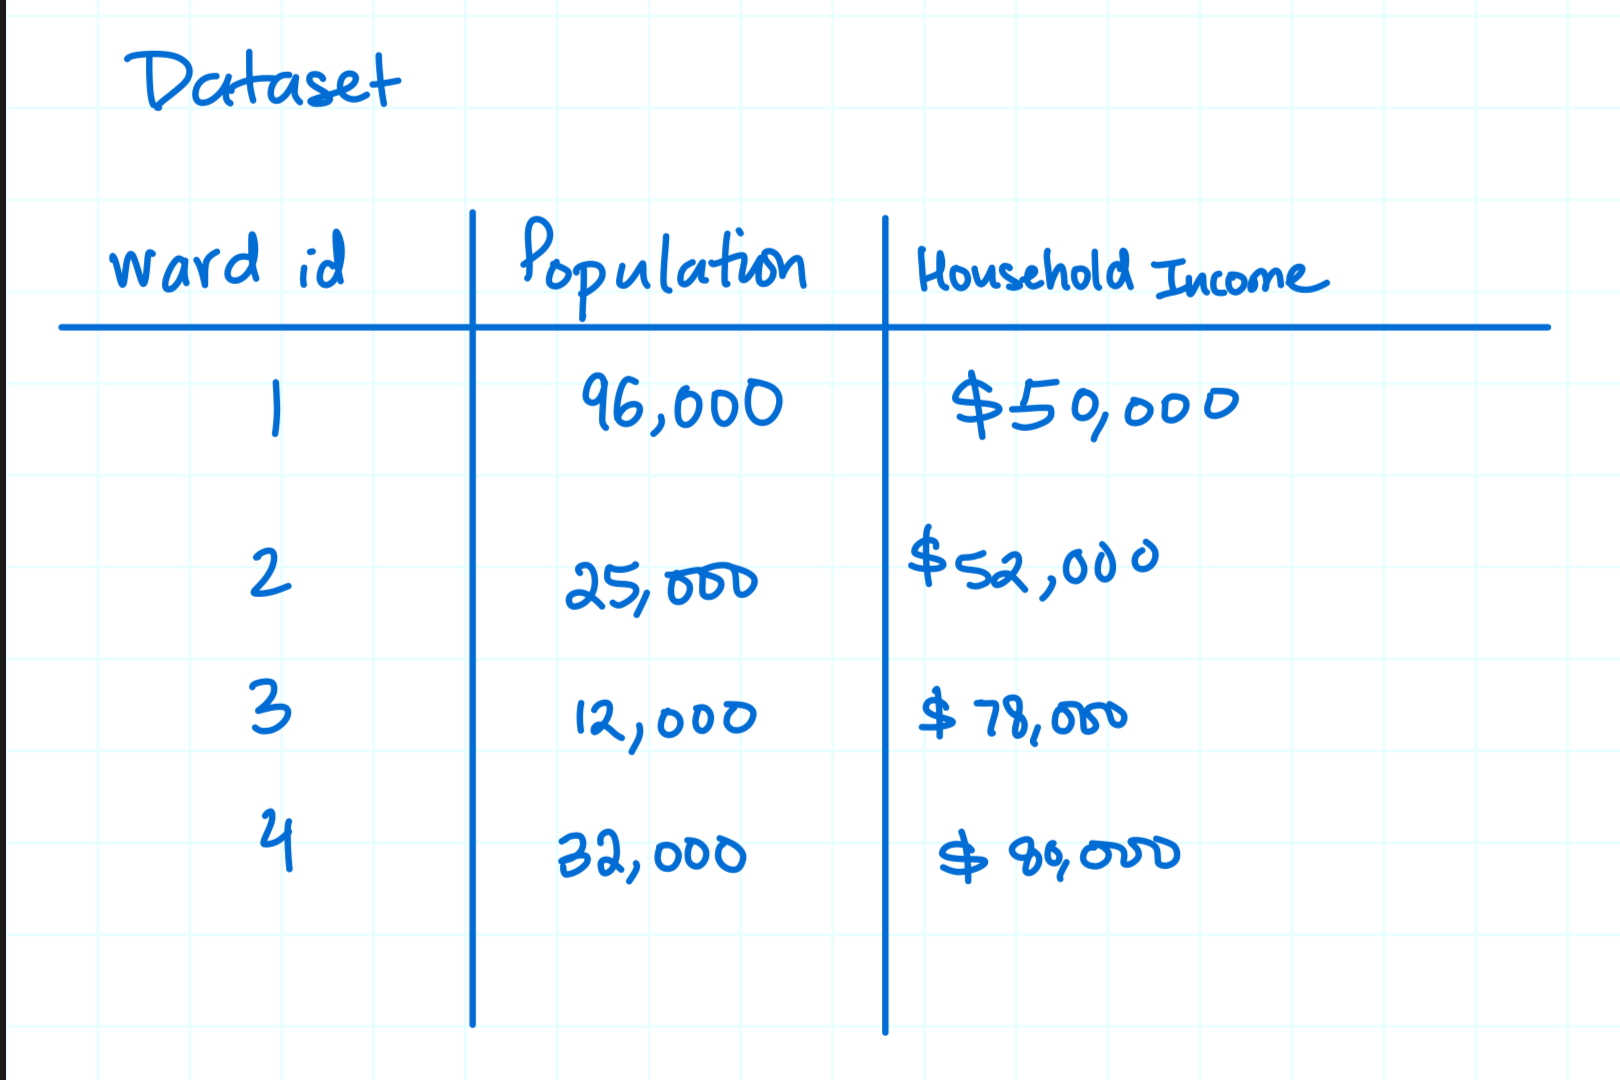 Dataset
ward id Population Household Income
1 96,000 $50,000
2 25,000 $52,000
3 12,000 $78,000
4 32,000 $80,000